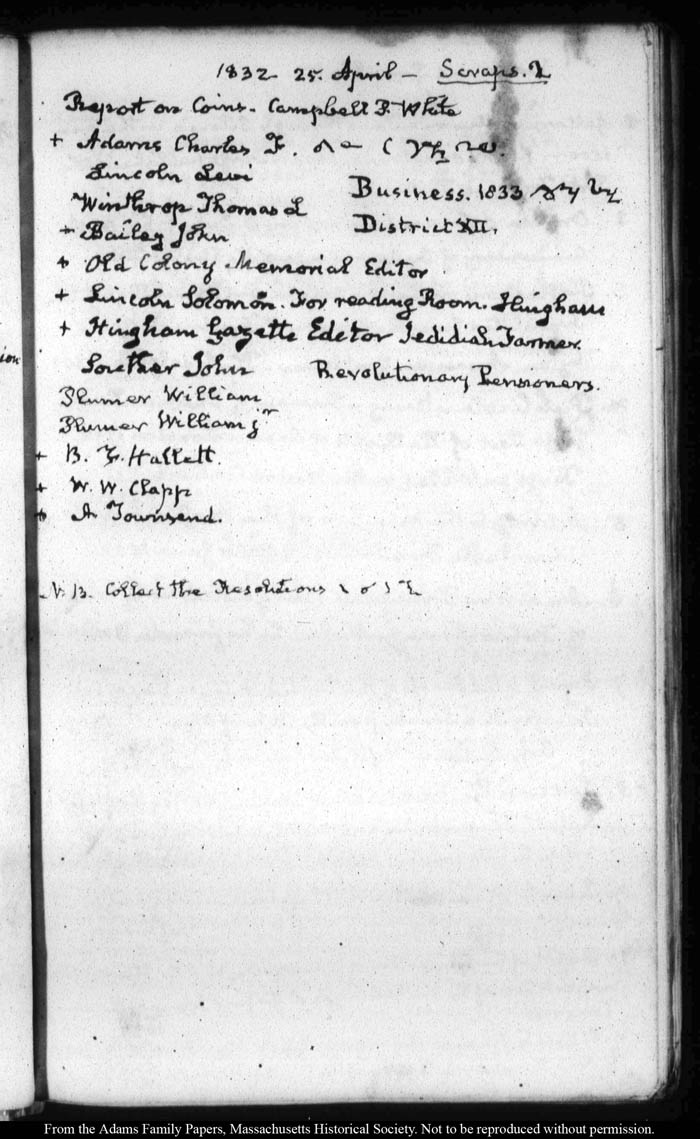 1832 25. April – Scraps.
Report on Coins. Campbell P. White
+ Adams Charles F.
Lincoln Levi
Winthrop Thomas L Business. 1833
+ Bailey John District XII.
+ Old Colony Memorial Editor
+ Lincoln Solomon. For reading Room. Hingham
+ Hingham Gazette Editor Jedidiah Farmer
Souther John Revolutionary Pensioners.
Plumer William
Plumer William jr
+ B. F. Hallett.
+ W. W. Clapp
+ A Townsend.
N. B. Collect the Resolutions
ion
From the Adams Family Papers, Massachusetts Historical Society. Not to be reproduced without permission.